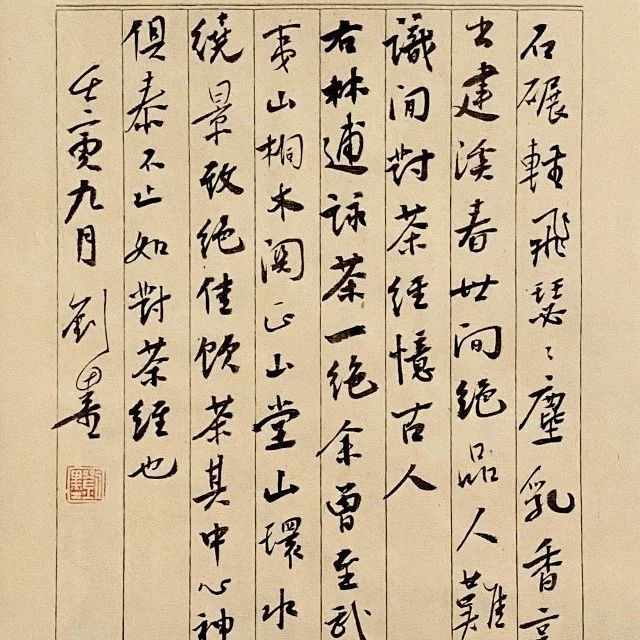 石碾輕飛瑟〻塵乳香烹
出建溪春世間絕品人難
識間對茶經憶古人
右林逋詠茶一絕余曾至武
夷山桐木關正山堂山環水
繞景致絕佳飲茶其中心神
俱泰不止如對茶經也
壬寅九月劉墨